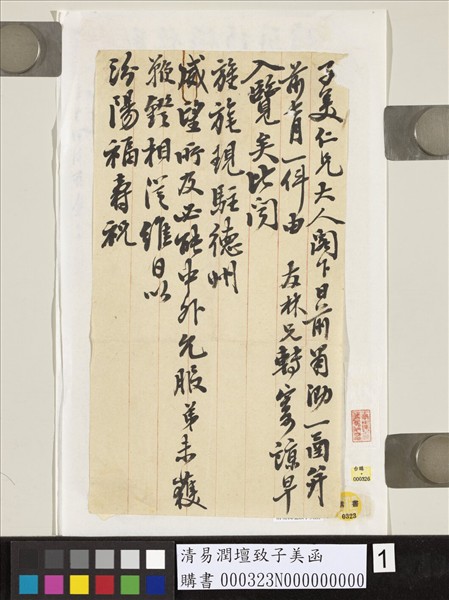 子美仁兄大人閣下日前肅泐一函并
前月一件由友林兄轉寄諒早
入覽矣比閱
旌旄現駐德州
威望所及必能中外允服弟未獲
鞭鐙相從維日以
汾陽福壽祝
000326
0323
清易潤壇致子美函
購書 000323N000000000
1